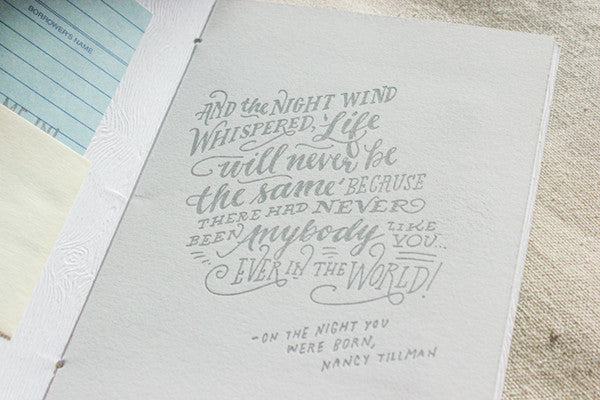 BORROWER'S NAME
AND the NIGHT WIND
WHISPERED, 'Life
will never be
the same' BECAUSE
THERE HAD NEVER
BEEN Anybody LIKE
YOU...
EVER IN THE WORLD!
-ON THE NIGHT YOU
WERE BORN,
NANCY TILLMAN